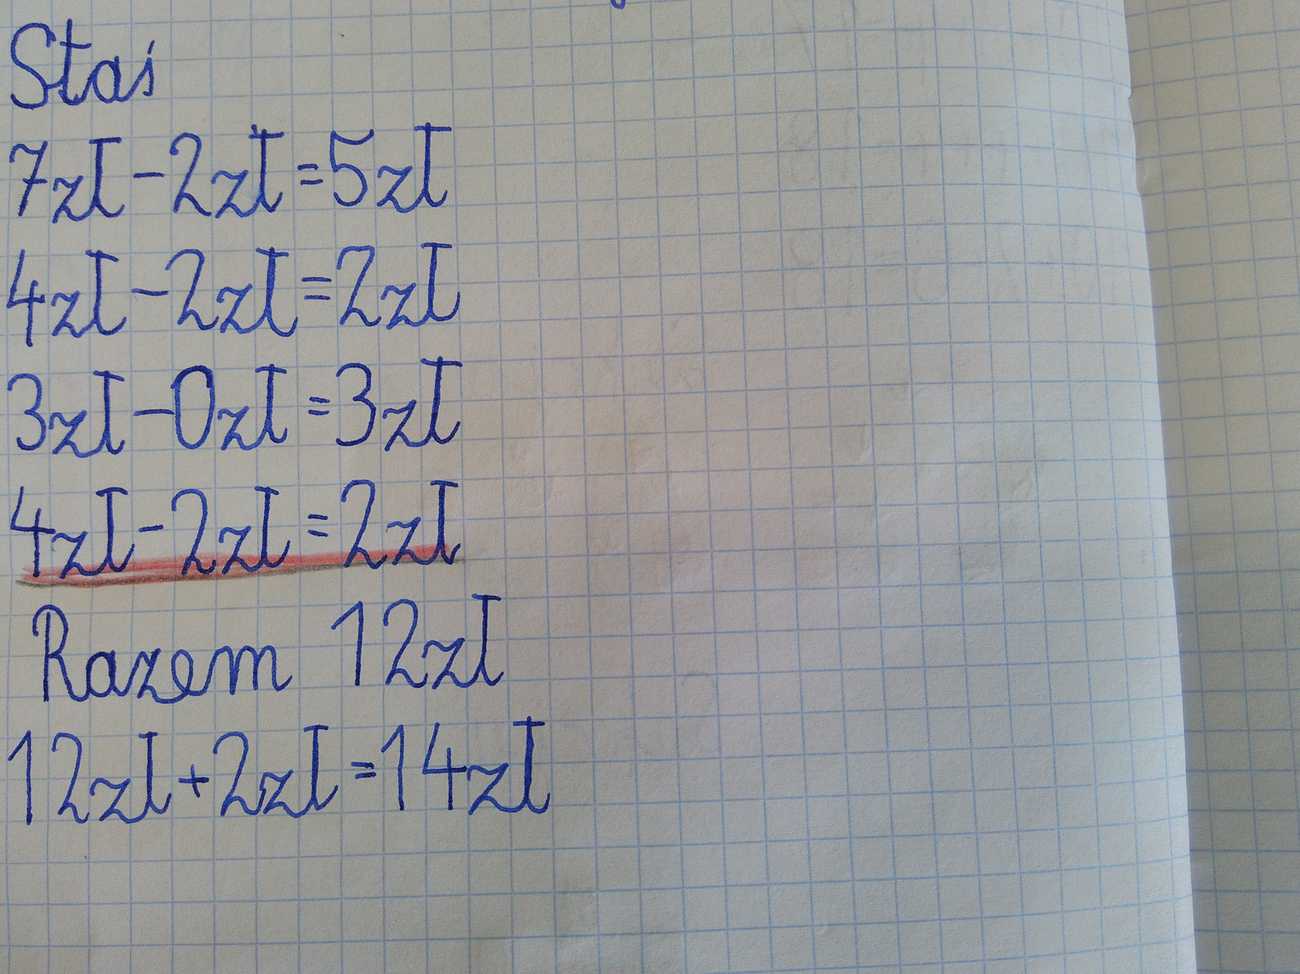 Staś
7zł-2zł=5zł
4zł-2zł=2zł
3zł-0zł=3zł
4zł-2zł=2zł
Razem 12zł
12zł+2zł=14zł